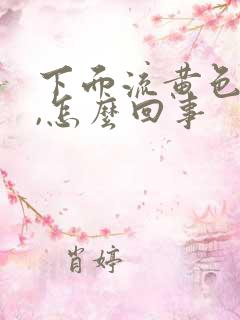 下而流黄色
,怎麼回事
肖婷